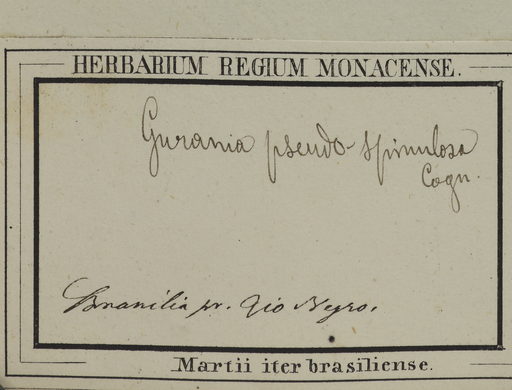 HERBARIUM REGIUM MONACENSE.
Gurania pseudo-spinulosa
Cogn.
Brasilia pr. Rio Negro.
Martii iter brasiliense.